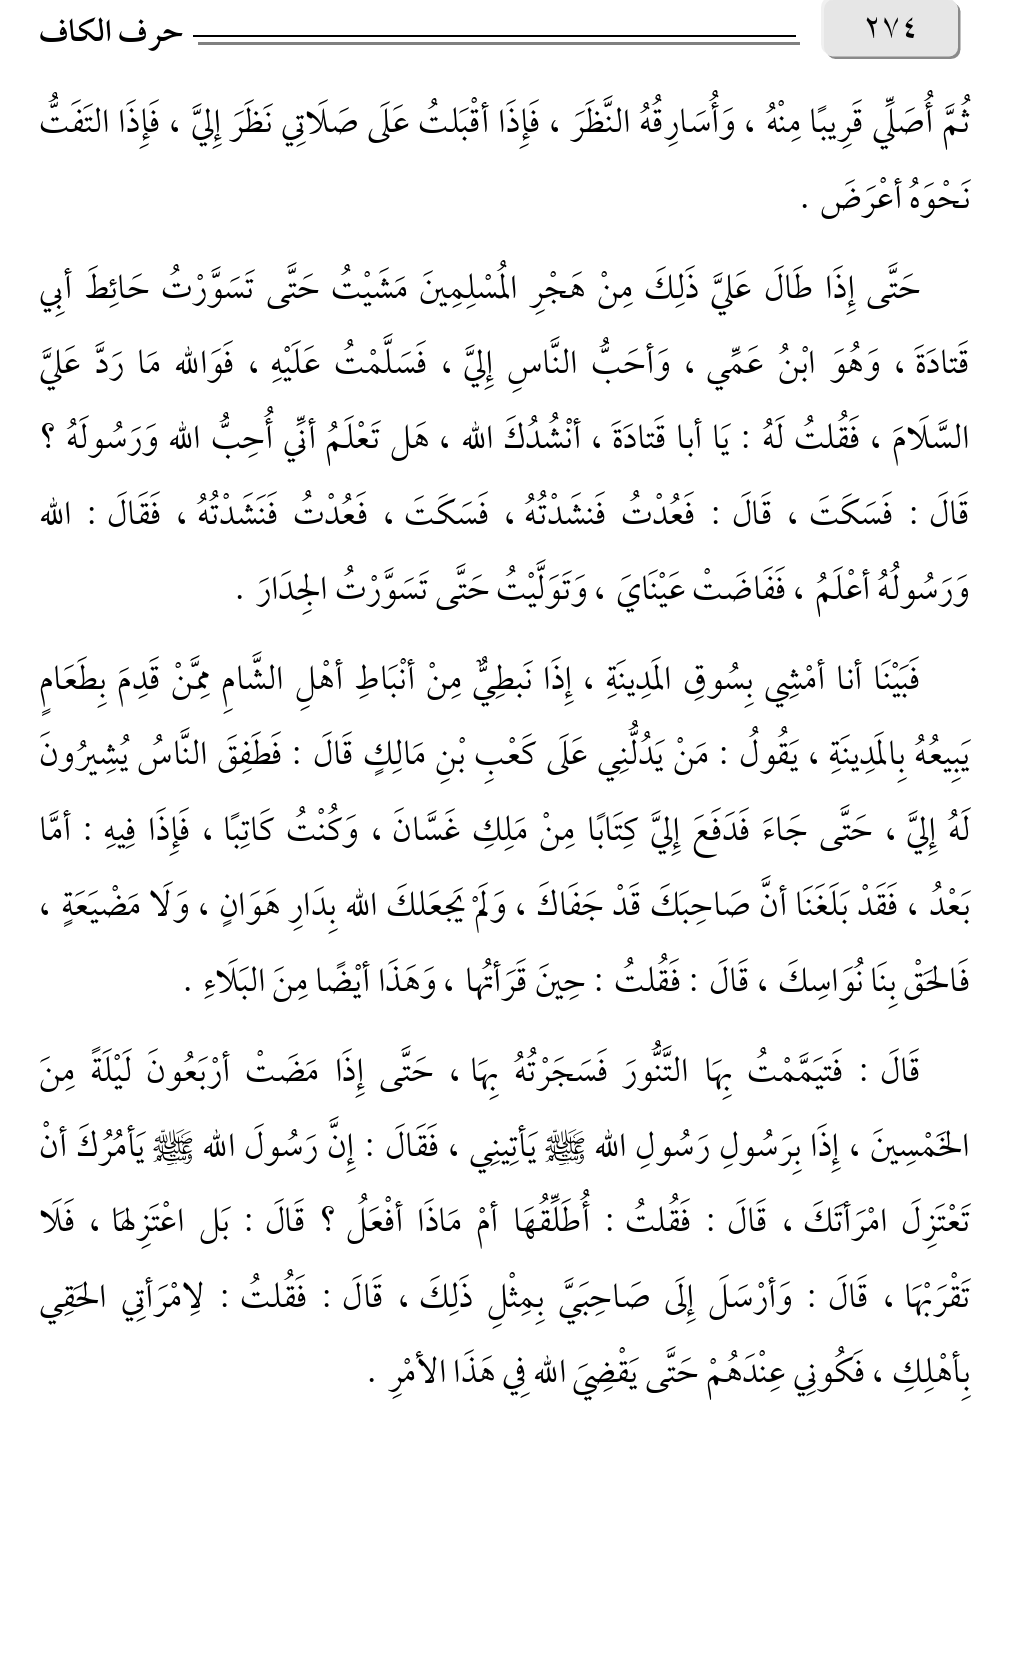 ٢٧٤
حرف الكاف
ثُمَّ أُصَلِّي قَرِيبًا مِنْهُ ، وَأُسَارِقُهُ النَّظَرَ ، فَإِذَا أقْبَلتُ عَلَى صَلَاتِي نَظَرَ إِليَّ ، فَإِذَا التَفَتُّ
نَحْوَهُ أعْرَضَ .
حَتَّى إِذَا طَالَ عَليَّ ذَلِكَ مِنْ هَجْرِ المُسْلِمِينَ مَشَيْتُ حَتَّى تَسَوَّرْتُ حَائِطَ أبِي
قَتادَةَ ، وَهُوَ ابْنُ عَمِّي ، وَأحَبُّ النَّاسِ إِليَّ ، فَسَلَّمْتُ عَلَيْهِ ، فَوَالله مَا رَدَّ عَليَّ
السَّلَامَ ، فَقُلتُ لَهُ : يَا أبا قَتادَةَ ، أنْشُدُكَ الله ، هَل تَعْلَمُ أنِّي أُحِبُّ الله وَرَسُولَهُ ؟
قَالَ : فَسَكَتَ ، قَالَ : فَعُدْتُ فَنشَدْتُهُ ، فَسَكَتَ ، فَعُدْتُ فَنَشَدْتُهُ ، فَقَالَ : الله
وَرَسُولُهُ أعْلَمُ ، فَفَاضَتْ عَيْنَايَ ، وَتَوَلَّيْتُ حَتَّى تَسَوَّرْتُ الجِدَارَ .
فَبَيْنَا أنا أمْشِي بِسُوقِ المَدِينَةِ ، إِذَا نَبطِيٌّ مِنْ أنْبَاطِ أهْلِ الشَّامِ مِمَّنْ قَدِمَ بِطَعَامٍ
يَبِيعُهُ بِالمَدِينَةِ ، يَقُولُ : مَنْ يَدُلُّنِي عَلَى كَعْبِ بْنِ مَالِكٍ قَالَ : فَطَفِقَ النَّاسُ يُشِيرُونَ
لَهُ إِليَّ ، حَتَّى جَاءَ فَدَفَعَ إِليَّ كِتَابًا مِنْ مَلِكِ غَسَّانَ ، وَكُنْتُ كَاتِبًا ، فَإِذَا فِيهِ : أمَّا
بَعْدُ ، فَقَدْ بَلَغَنَا أنَّ صَاحِبَكَ قَدْ جَفَاكَ ، وَلَمْ يَجعَلكَ الله بِدَارِ هَوَانٍ ، وَلَا مَضْيَعَةٍ ،
فَالحَقْ بِنَا نُوَاسِكَ ، قَالَ : فَقُلتُ : حِينَ قَرَأتُها ، وَهَذَا أيْضًا مِنَ البَلَاءِ .
قَالَ : فَتيَمَّمْتُ بِهَا التَّنُّورَ فَسَجَرْتُهُ بِهَا ، حَتَّى إِذَا مَضَتْ أرْبَعُونَ لَيْلَةً مِنَ
الخَمْسِينَ ، إِذَا بِرَسُولِ رَسُولِ الله ﷺ يَأتِينِي ، فَقَالَ : إِنَّ رَسُولَ الله ﷺ يَأمُرُكَ أنْ
تَعْتَزِلَ امْرَأتَكَ ، قَالَ : فَقُلتُ : أُطَلِّقُهَا أمْ مَاذَا أفْعَلُ ؟ قَالَ : بَل اعْتَزِلهَا ، فَلَا
تَقْرَبْهَا ، قَالَ : وَأرْسَلَ إِلَى صَاحِبَيَّ بِمِثْلِ ذَلِكَ ، قَالَ : فَقُلتُ : لِامْرَأتِي الحَقِي
بِأهْلِكِ ، فَكُونِي عِنْدَهُمْ حَتَّى يَقْضِيَ الله فِي هَذَا الأمْرِ .